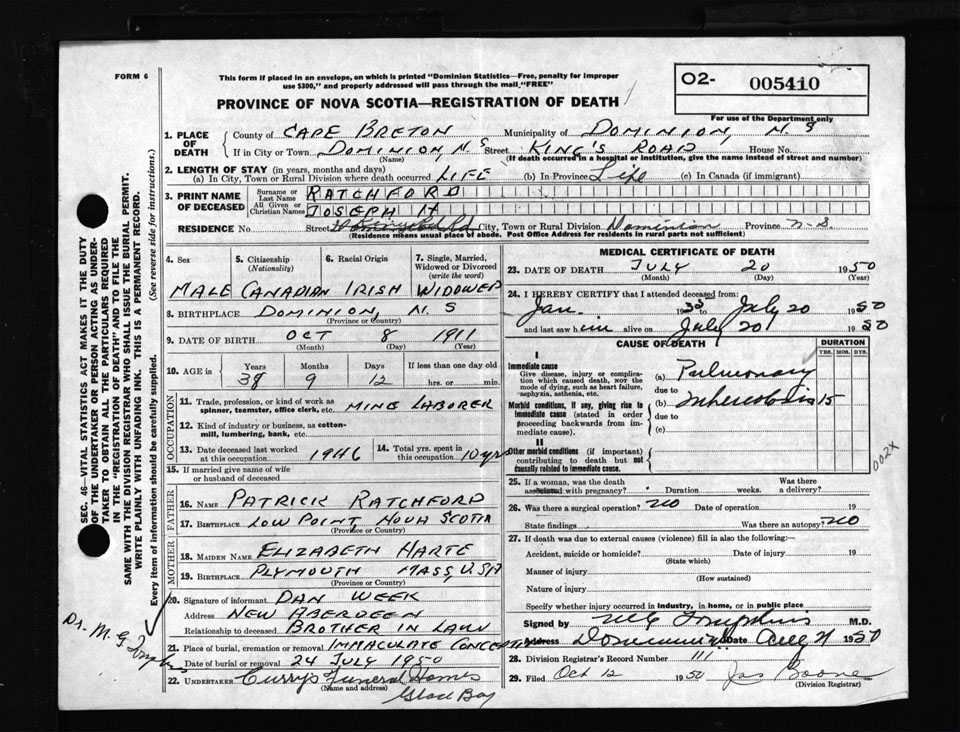 FORM 6
This form if placed in an envelope, on which is printed "Dominion Statistics—Free, penalty for improper
use $300," and properly addressed will pass through the mail "FREE"
O2- 005410
For use of the Department only
PROVINCE OF NOVA SCOTIA—REGISTRATION OF DEATH
1. PLACE OF DEATH County of CAPE BRETON Municipality of DOMINION, N.S
If in City or Town DOMINION, N.S Street KING'S ROAD House No.
(Name) (If death occurred in a hospital or institution, give the name instead of street and number)
2. LENGTH OF STAY (in years, months and days)
(a) In City, Town or Rural Division where death occurred LIFE (b) In Province Life (c) In Canada (if immigrant)
3. PRINT NAME OF DECEASED
Surname or Last Name RATCHFORD
All Given or Christian Names JOSEPH H
RESIDENCE No Street City, Town or Rural Division Dominion Province N-S
(Residence means usual place of abode. Post Office Address for residents in rural parts not sufficient)
4. Sex 5. Citizenship (Nationality) 6. Racial Origin 7. Single, Married, Widowed or Divorced (write the word)
MALE CANADIAN IRISH WIDOWED
8. BIRTHPLACE DOMINION, N.S
(Province or Country)
9. DATE OF BIRTH OCT 8 1911
(Month) (Day) (Year)
10. AGE in Years Months Days If less than one day old
38 9 12 hrs. or min.
OCCUPATION
11. Trade, profession, or kind of work as spinner, teamster, office clerk, etc. MINE LABORER
12. Kind of industry or business, as cotton-mill, lumbering, bank, etc.
13. Date deceased last worked at this occupation 1946 14. Total yrs. spent in this occupation 10 yrs
15. If married give name of wife or husband of deceased
FATHER
16. Name PATRICK RATCHFORD
17. Birthplace LOW POINT NOVA SCOTIA
(Province or Country)
MOTHER
18. Maiden Name ELIZABETH HARTE
19. Birthplace PLYMOUTH MASS, U.S.A
(Province or Country)
20. Signature of informant DAN WEEK
Address NEW ABERDEEN
Relationship to deceased BROTHER IN LAW
21. Place of burial, cremation or removal IMMACULATE CONCEPTION
Date of burial or removal 24 JULY 1950
22. UNDERTAKER Curry's Funeral Homes
(Name and address) Glace Bay
MEDICAL CERTIFICATE OF DEATH
23. DATE OF DEATH JULY 20 1950
(Month) (Day) (Year)
24. I HEREBY CERTIFY that I attended deceased from:
Jan. to July 20 1950
and last saw him alive on July 20 1950
CAUSE OF DEATH DURATION
YRS. MOS. DYS.
I
Immediate cause
Give disease, injury or complication which caused death, not the mode of dying, such as heart failure, asphyxia, asthenia, etc.
(a) Pulmonary
due to
Morbid conditions, if any, giving rise to immediate cause (stated in order proceeding backwards from immediate cause).
(b) Tuberculosis 15
due to
(c)
II
Other morbid conditions (if important) contributing to death but not causally related to immediate cause.
002X
25. If a woman, was the death associated with pregnancy? Duration weeks. Was there a delivery?
26. Was there a surgical operation? NO Date of operation 19
State findings Was there an autopsy? NO
27. If death was due to external causes (violence) fill in also the following:
Accident, suicide or homicide? Date of injury 19
(State which)
Manner of injury
(How sustained)
Nature of injury
Specify whether injury occurred in industry, in home, or in public place
Signed by M G Tompkins M.D.
Address Dominion Date 1950
28. Division Registrar's Record Number 111
29. Filed Oct 12 1950 Jas Boone
(Division Registrar)
SEC. 46—VITAL STATISTICS ACT MAKES IT THE DUTY
OF THE UNDERTAKER OR PERSON ACTING AS UNDER-
TAKER TO OBTAIN ALL THE PARTICULARS REQUIRED
IN THE "REGISTRATION OF DEATH" AND TO FILE THE
SAME WITH THE DIVISION REGISTRAR WHO SHALL ISSUE THE BURIAL PERMIT.
WRITE PLAINLY WITH UNFADING INK. THIS IS A PERMANENT RECORD.
Every item of information should be carefully supplied. (See reverse side for instructions.)
Dr. M. G Tompkins